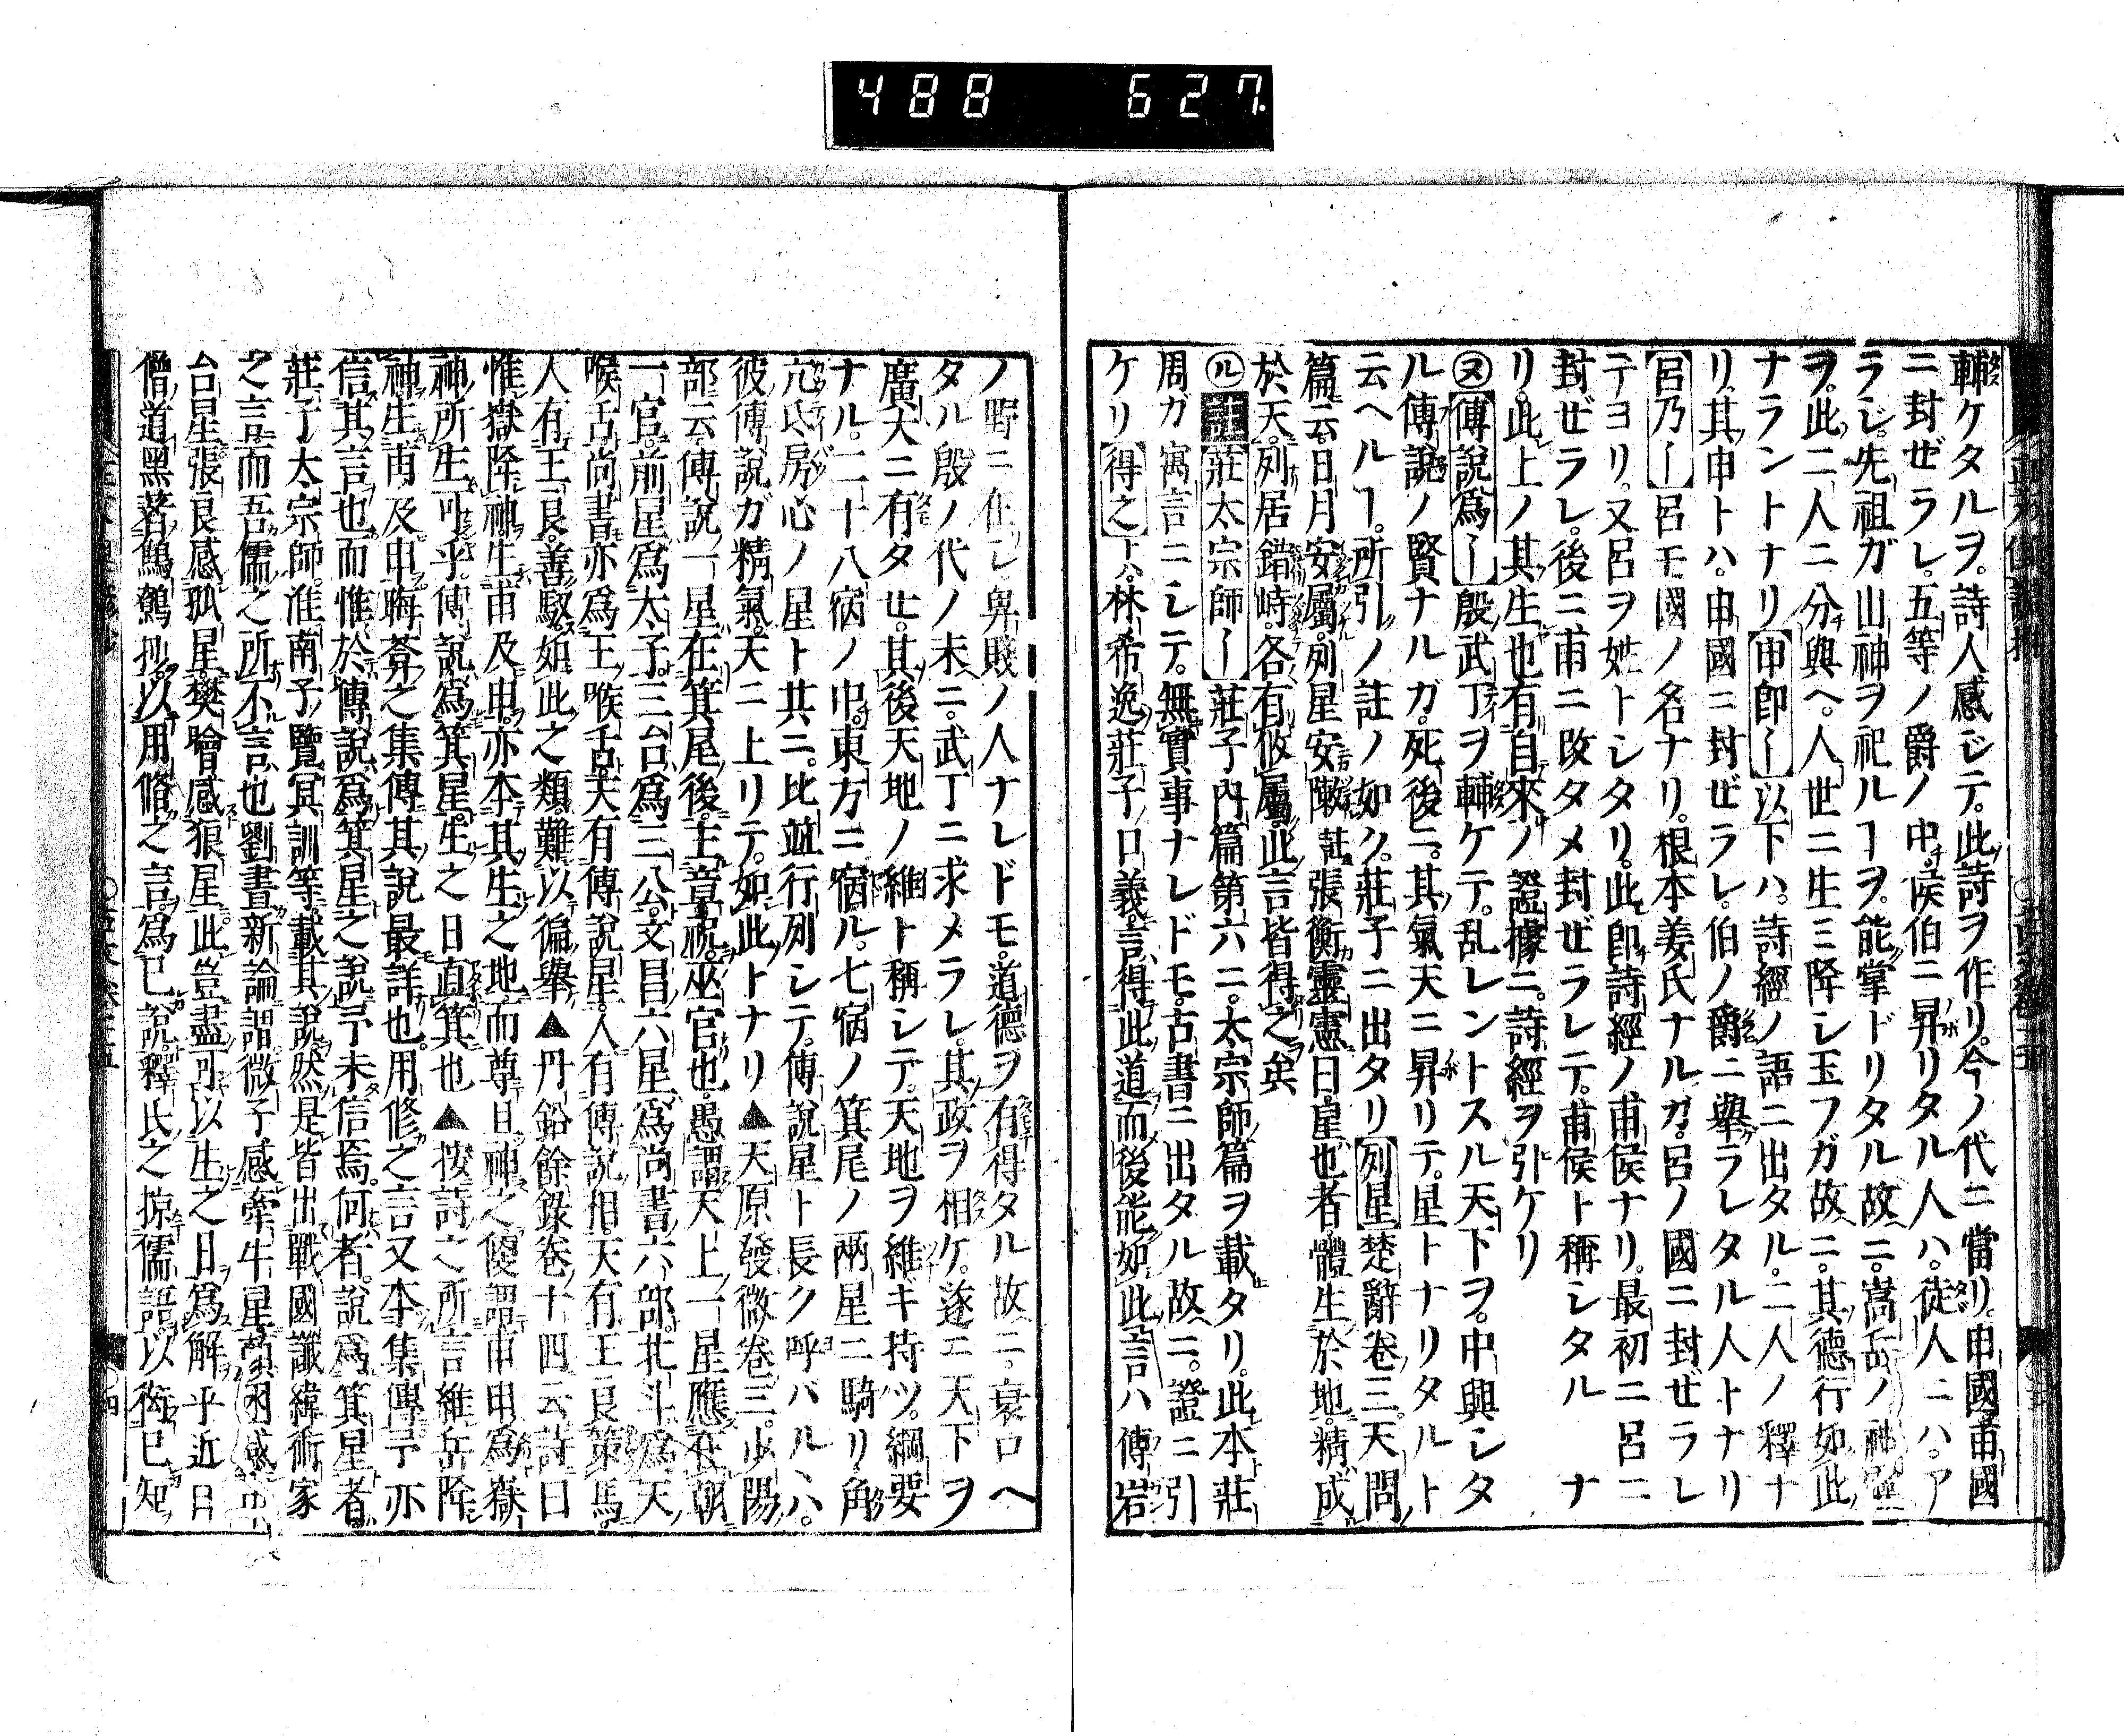 488 627.
輔ケタルヲ。詩人感ジテ。此詩ヲ作リ。今ノ代ニ當リ。申國甫國
ニ封ゼラレ。五等ノ爵ノ中。侯伯ニ昇リタル人ハ。徒人ニハ。ア
ラじ。先祖ガ山神ヲ祀ルヿヲ。能掌ドリタル故ニ。嵩岳ノ神
ヲ。此二人ニ分與ヘ。人世ニ生ミ降シ玉フガ故ニ。其德行如此
ナラントナリ申卽〡以下ハ。詩經ノ語ニ出タル。二人ノ釋ナ
リ。其申トハ。申國ニ封ゼラレ。伯ノ爵ニ擧ラレタル人トナリ
呂乃〡呂モ國ノ名ナリ。根本姜氏ナルガ。呂ノ國ニ封ゼラレ
テヨリ。又呂ヲ姓トシタリ。此卽詩經ノ甫侯ナリ。最初ニ呂ニ
封ゼラレ。後ニ甫ニ改タメ封ゼラレテ。甫侯ト稱シタルナ
リ。此上ノ其生也有自來ノ證據ニ。詩經ヲ引ケリ
㋦傅說爲〡殷武丁ヲ輔ケテ。乱レントスル天下ヲ。中興シタ
ル傅說ノ賢ナルガ。死後ニ。其氣天ニ昇リテ。星トナリタルト
云ヘルヿ。所引ノ註ノ如ク。莊子ニ出タリ列星楚辭卷三。天問
篇云。日月安屬。列星安陳註張衡靈憲曰。星也者體生於地。精成
於天。列居錯峙。各有攸屬。此言皆得之矣
㋸註莊太宗師〡莊子內篇第六ニ。太宗師篇ヲ載タリ。此本莊
周ガ寓言ニシテ。無實事ナレドモ。古書ニ出タル故ニ。證ニ引
ケリ得之下。林希逸莊子口義。言得此道而後能如此。言ハ傅岩
ノ野ニ在シ鼻賤ノ人ナレドモ。道德ヲ有得タル故ニ。衰ロヘ
タル殷ノ代ノ末ニ。武丁ニ求メラレ。其政ヲ相ケ。遂ニ天下ヲ
廣大ニ有タせ。其後天地ノ維ト稱シテ。天地ヲ維ギ持ツ。綱要
ナル。二十八宿ノ中。東方ニ宿ル。七宿ノ箕尾ノ兩星ニ騎リ角
亢氐房心ノ星ト共ニ。比竝行列シテ。傅說星ト長ク呼バルハ。
彼傅說ガ精氣。天ニ上リテ。如此トナリ▲天原發微卷三。少陽
部云。傅說一星。在箕尾後。主章祝。巫官也。愚謂天上一星應在朝
一官。前星爲太子。三台爲三公。文昌六星爲尚書六部。北斗爲天
喉舌。尚書亦爲王喉舌。天有傅說星。人有傅說相。天有王良策馬。
人有王良。善馭。如此之類難以徧擧▲丹鉛餘錄卷十四云詩曰
惟嶽降神生甫及申。亦本其生之地而尊且神之。傻謂甫申爲嶽
神所生可乎。傅說爲箕星。生之日直箕也▲按詩之所言維岳降
神。生甫及申。晦菴之集傳其說最詳也。用修之言又本集傳予亦
信其言也。而惟於傅說爲箕星之說予未信焉。何者。說爲箕星者。
莊子太宗師。淮南子覽冥訓等載其說。然是皆出戰國讖緯術家
之言。而吾儒之所不言也劉晝新論謂。微子感牽牛星顏囘感中
台星張良感弧星。樊噲感狼星。此豈盡可以生之日爲解乎近日
僧道黑著鷦鷯抄。以用脩之言。爲已說。釋氏之掠儒語以衒已知